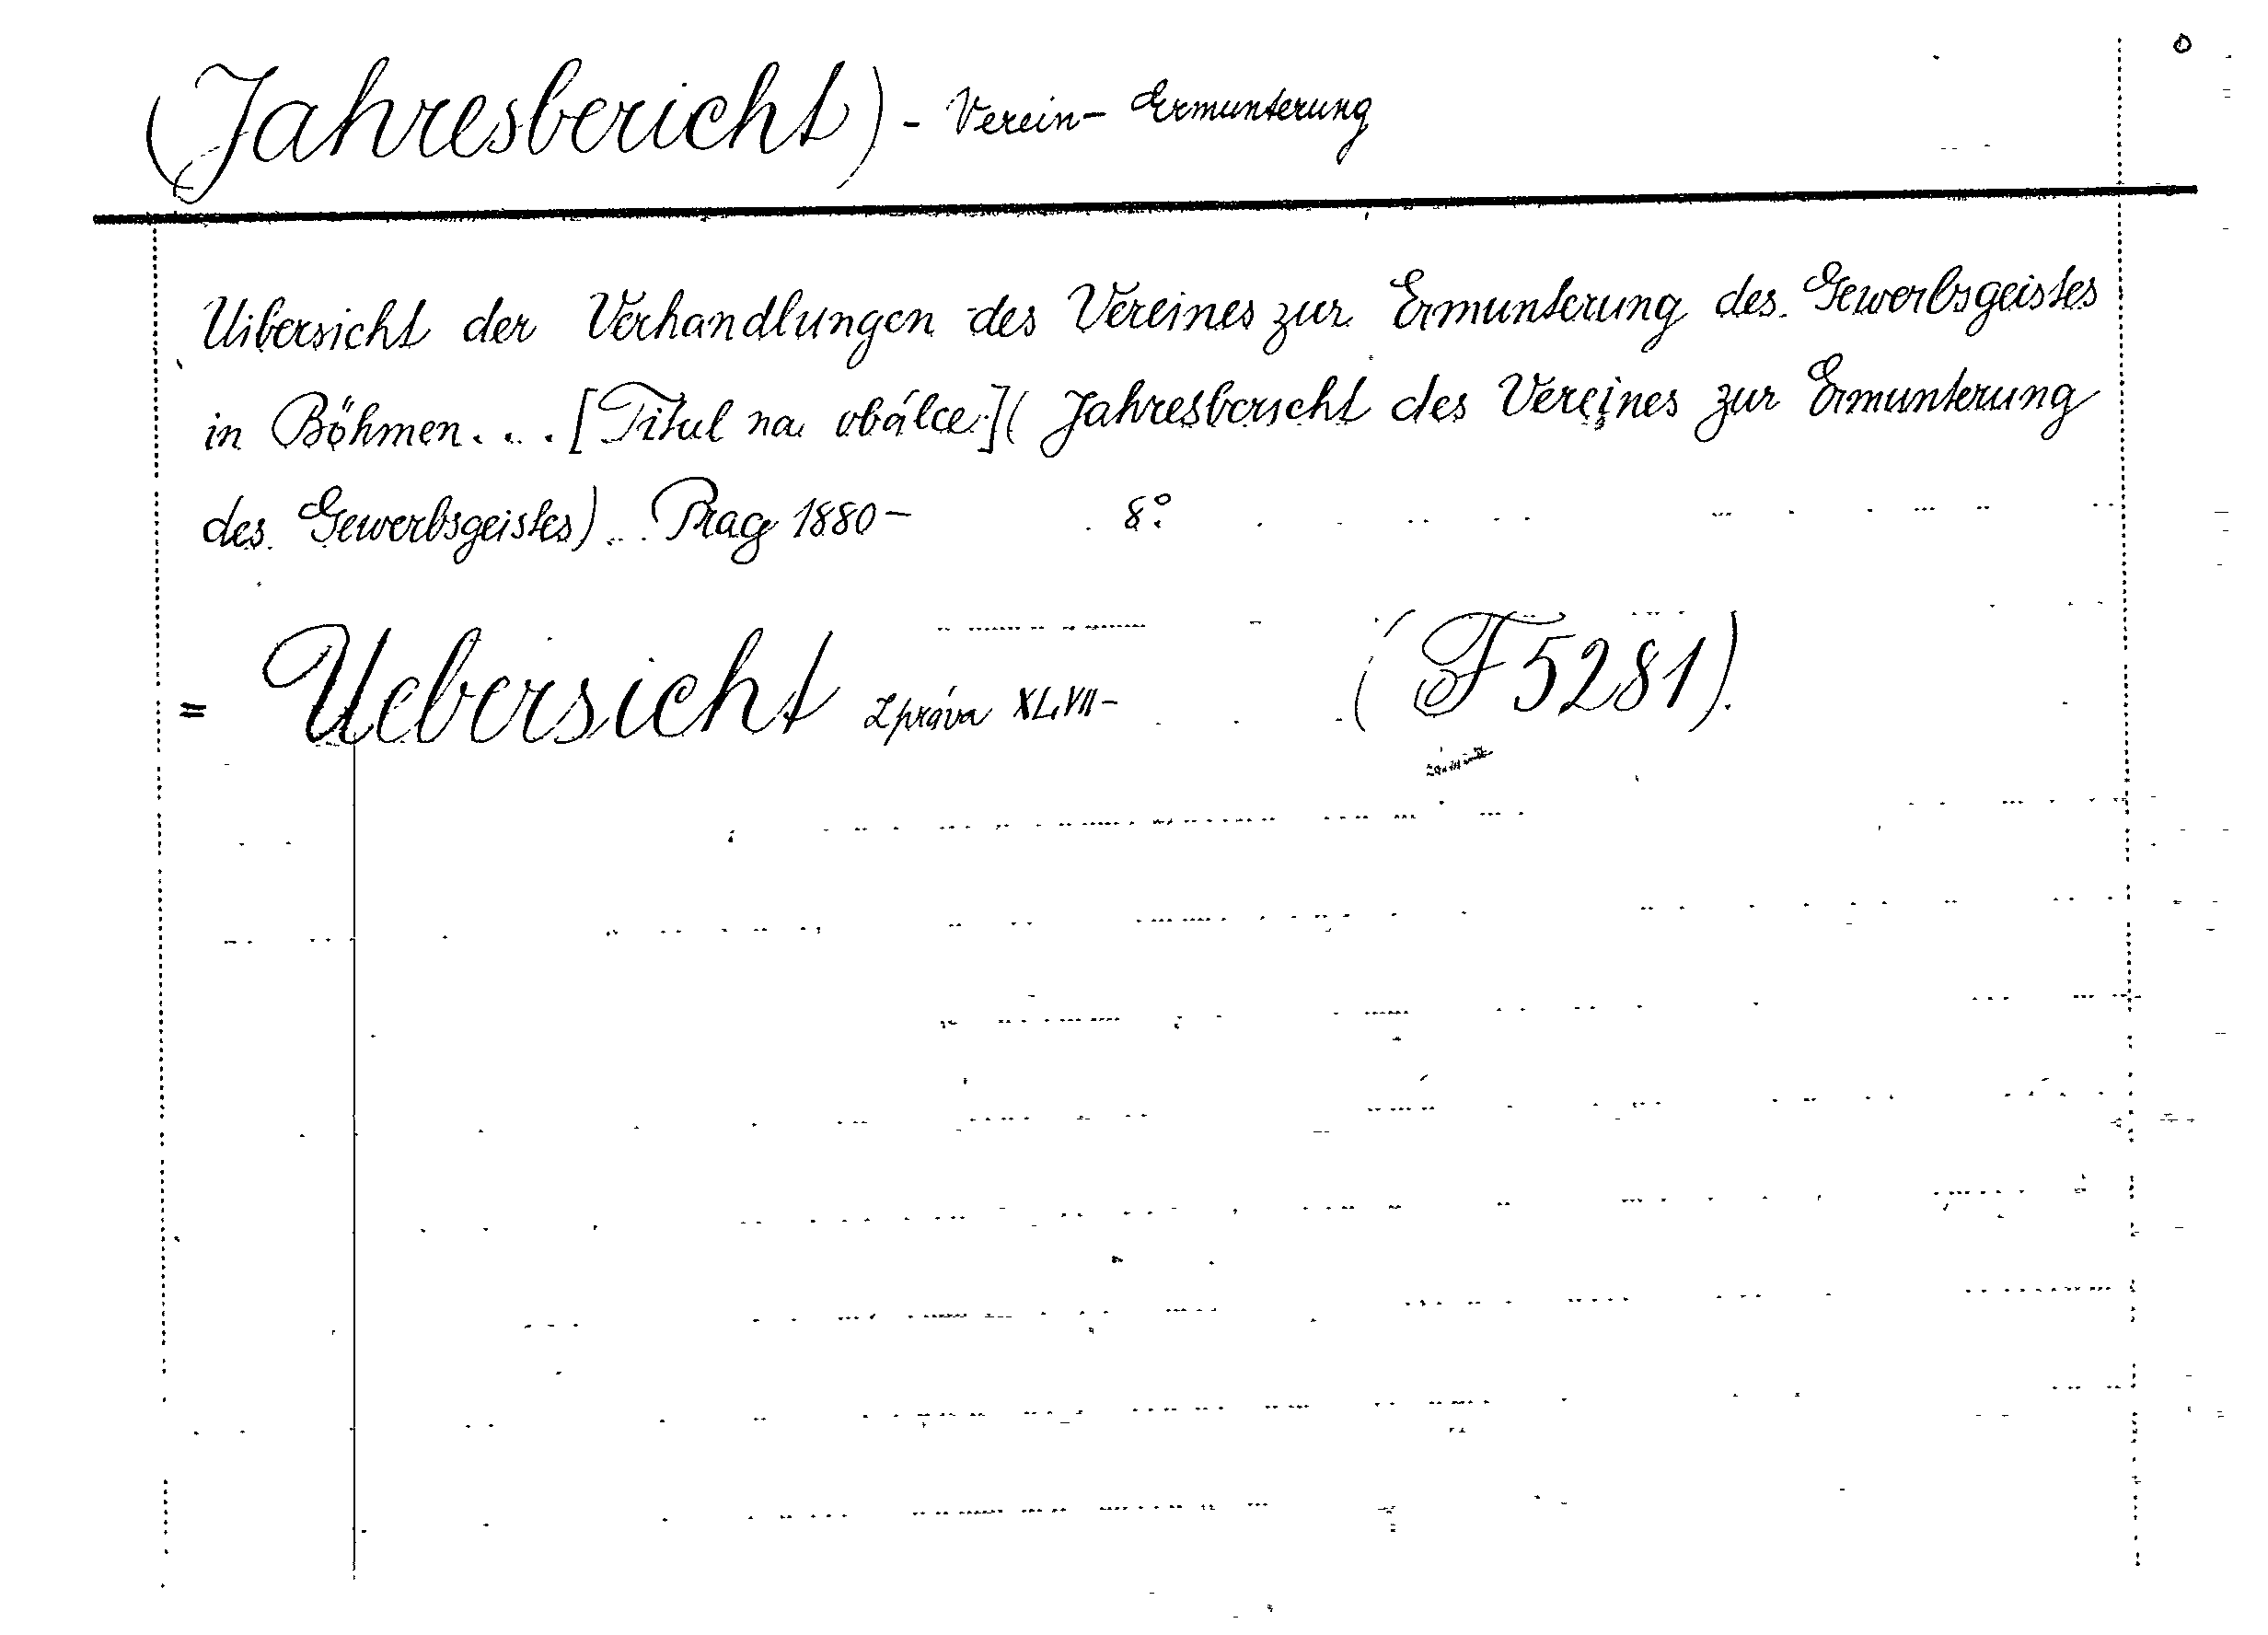 (Jahresbericht) - Verein - Ermunterung
Uibersicht der Verhandlungen des Vereines zur Ermunterung des Gewerbsgeistes
in Böhmen.... [Titul na obálce.] (Jahresbericht des Vereines zur Ermunterung
des Gewerbsgeistes) .. Prag 1880 - 8°.
= Uebersicht Zpráva XLVII - (F 5281).